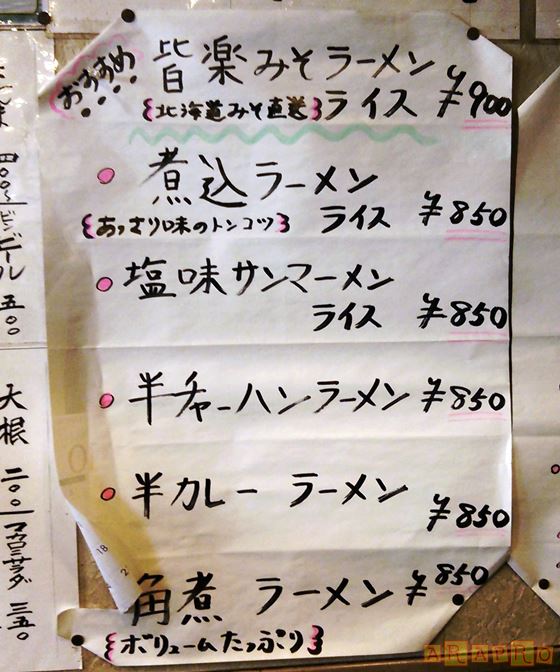 おすすめ
皆楽みそラーメン
{北海道みそ直送}ライス ¥900
煮込ラーメン
{あっさり味のトンコツ} ライス ¥850
塩味サンマーメン
ライス ¥850
半チャーハンラーメン ¥850
半カレー ラーメン
¥850
角煮 ラーメン ¥850
{ボリュームたっぷり}
四〇〇
ビンビール 五〇〇
大根 二〇〇
マカロニサラダ 三五〇
18
2
ARAPRO